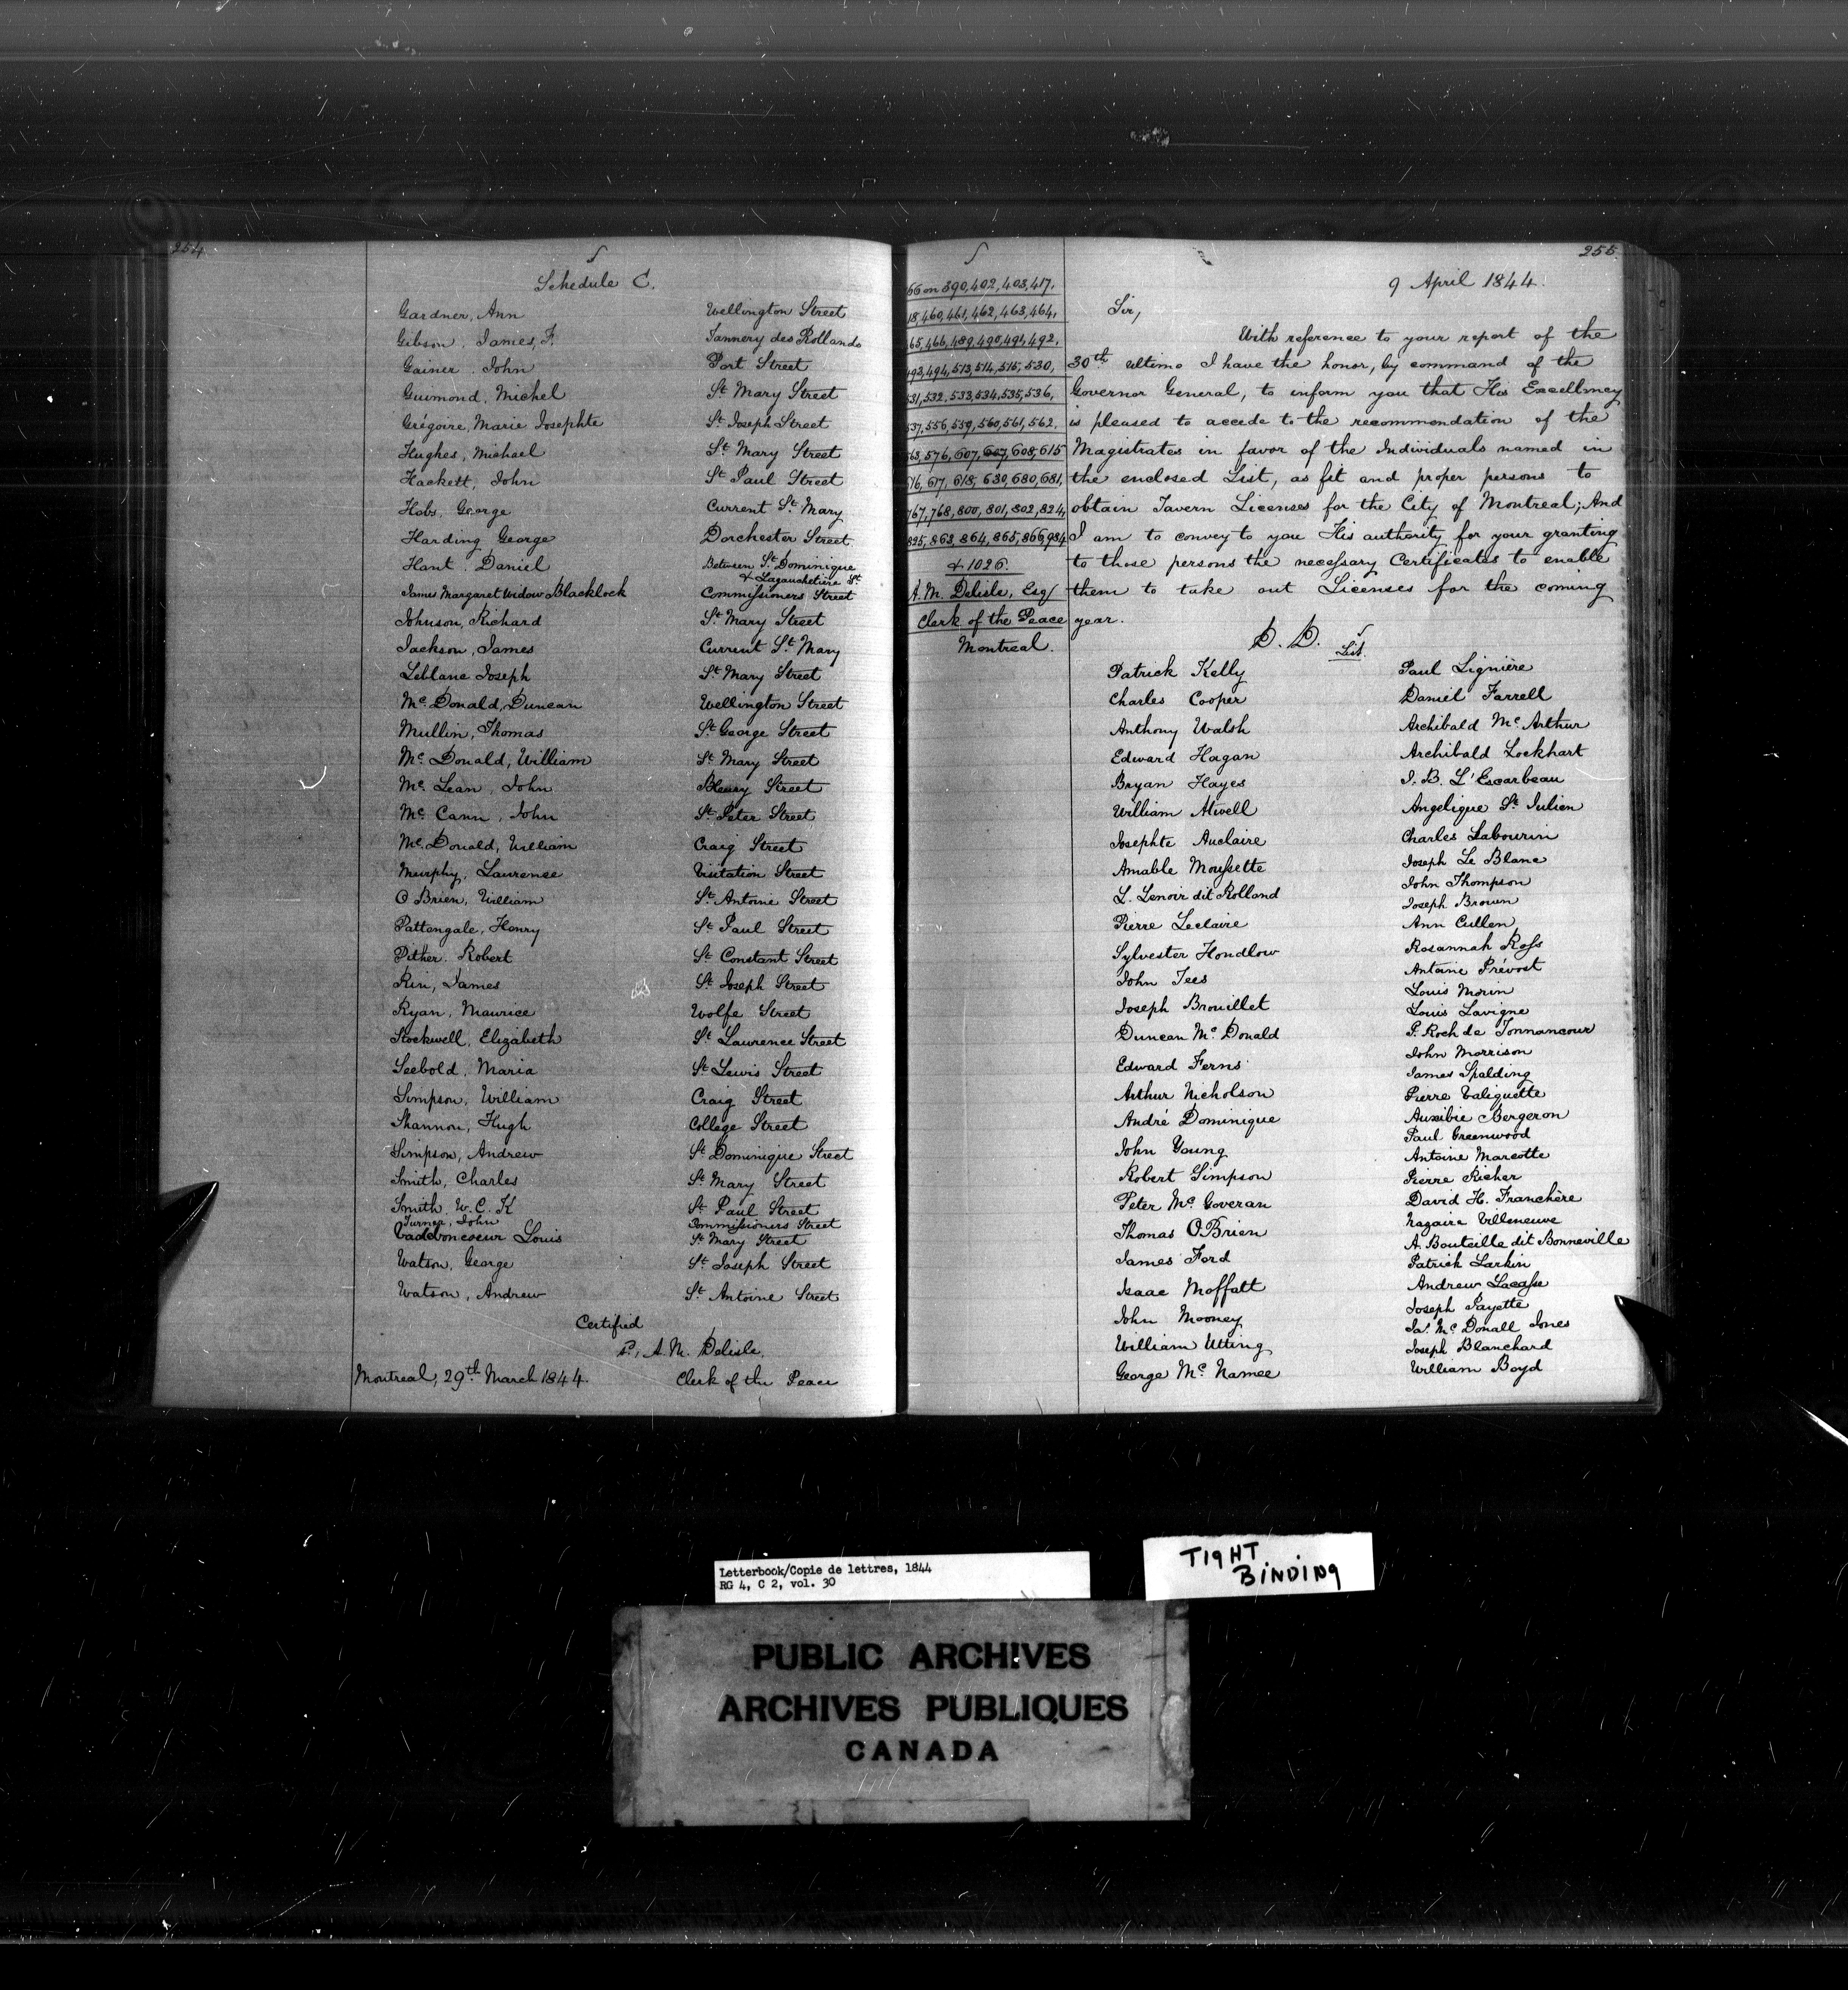 254
Schedule C.
Gardner, Ann Wellington Street
Gibson, James, F. Tannery des Rollands
Gainer, John Port Street
Guimond, Michel St. Mary Street
Grégoire, Marie Josephte St. Joseph Street
Hughes, Michael St. Mary Street
Hackett, John St. Paul Street
Hobs, George Current St. Mary
Harding George Dorchester Street
Hant, Daniel Between St. Dominique
& Lagauchetière St.
James Margaret Widow Blacklock Commissioners Street
Johnson, Richard St. Mary Street
Jackson, James Current St. Mary
Leblanc Joseph St. Mary Street
Mc. Donald, Duncan Wellington Street
Mullin, Thomas St. George Street
Mc. Donald, William St. Mary Street
Mc. Lean, John Bleury Street
Mc. Cann, John St. Peter Street
Mc. Donald, William Craig Street
Murphy, Laurence Visitation Street
O Brien, William St. Antoine Street
Pattengale, Henry St. Paul Street
Pither, Robert St. Constant Street
Rin, James St. Joseph Street
Ryan, Maurice Wolfe Street
Stockwell, Elizabeth St. Lawrence Street
Seebold, Maria St. Lewis Street
Simpson, William Craig Street
Shannon, Hugh College Street
Simpson, Andrew St. Dominique Street
Smith, Charles St. Mary Street
Smith, W. C. K St. Paul Street
Turner, John Commissioners Street
Vadeboncoeur Louis St. Mary Street
Watson, George St. Joseph Street
Watson, Andrew St. Antoine Street
Certified
A. M. Delisle.
Montreal, 29th. March 1844. Clerk of the Peace
255
66 on 390, 402, 403, 417,
18, 460, 461, 462, 463, 464,
65, 466, 489, 490, 491, 492,
493, 494, 513, 514, 515, 530,
531, 532, 533, 534, 535, 536,
537, 556, 559, 560, 561, 562,
563, 576, 607, 607, 608, 615
616, 617, 618, 630, 680, 681,
767, 768, 800, 801, 802, 824,
825, 863, 864, 865, 866, 984
& 1026.
A. M. Delisle, Esq
Clerk of the Peace
Montreal.
9 April 1844.
Sir,
With reference to your report of the
30th ultimo I have the honor, by command of the
Governor General, to inform you that His Excellency
is pleased to accede to the recommendation of the
Magistrates in favor of the Individuals named in
the enclosed List, as fit and proper persons to
obtain Tavern Licenses for the City of Montreal; And
I am to convey to you His authority for your granting
to those persons the necessary Certificates to enable
them to take out Licenses for the coming
year.
D. D.
List
Patrick Kelly
Charles Cooper
Anthony Walsh
Edward Hagan
Bryan Hayes
William Alwell
Josephte Auclaire
Amable Moussette
L. Lenoir dit Rolland
Pierre Leclaire
Sylvester Hondlow
John Tees
Joseph Brouillet
Duncan Mc. Donald
Edward Ferns
Arthur Nicholson
André Dominique
John Young
Robert Simpson
Peter Mc. Goveran
Thomas O'Brien
James Ford
Isaac Moffatt
John Mooney
William Utting
George Mc. Namee
Paul Lignière
Daniel Farrell
Archibald Mc. Arthur
Archibald Lockhart
J. B. L'Escarbeau
Angelique St. Julien
Charles Labourin
Joseph Le Blanc
John Thompson
Joseph Brown
Ann Cullen
Rosannah Ross
Antoine Prévost
Louis Morin
Louis Lavigne
P. Roch de Tonnancour
John Morrison
James Spalding
Pierre Valiquette
Auxibie Bergeron
Paul Greenwood
Antoine Marcotte
Pierre Richer
David H. Franchère
Nazaire Villeneuve
A. Bouteille dit Bonneville
Patrick Larkin
Andrew Lacasse
Joseph Payette
Jas. Mc. Donall Jones
Joseph Blanchard
William Boyd
Letterbook/Copie de lettres, 1844
RG 4, C 2, vol. 30
TIGHT
BINDING
PUBLIC ARCHIVES
ARCHIVES PUBLIQUES
CANADA